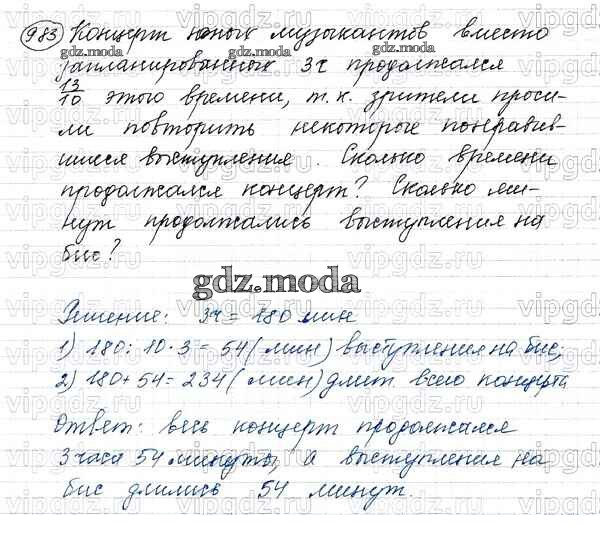 983 Концерт юных музыкантов вместо
запланированных 3ч продолжался
13/10 этого времени, т.к. зрители проси-
ли повторить некоторые понравив-
шиеся выступления. Сколько времени
продолжался концерт? Сколько ми-
нут продолжались выступления на
бис?
gdz.moda
Решение: 3ч = 180 мин
1) 180 : 10 · 3 = 54 (мин) выступления на бис;
2) 180 + 54 = 234 (мин) длит. всего концерта
Ответ: весь концерт продолжался
3 часа 54 минуты, а выступления на
бис длились 54 минут.